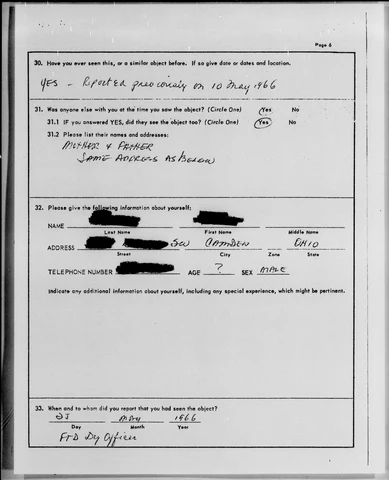 Page 6
30. Have you ever seen this, or a similar object before. If so give date or dates and location.
YES - Reported previously on 10 May 1966
31. Was anyone else with you at the time you saw the object? (Circle One) Yes No
31.1 IF you answered YES, did they see the object too? (Circle One) Yes No
31.2 Please list their names and addresses:
MOTHER & FATHER
SAME ADDRESS AS BELOW
32. Please give the following information about yourself:
NAME
Last Name First Name Middle Name
ADDRESS CAMDEN OHIO
Street City Zone State
TELEPHONE NUMBER AGE ? SEX MALE
Indicate any additional information about yourself, including any special experience, which might be pertinent.
33. When and to whom did you report that you had seen the object?
MAY 1966
Day Month Year
FTD Dy Officer